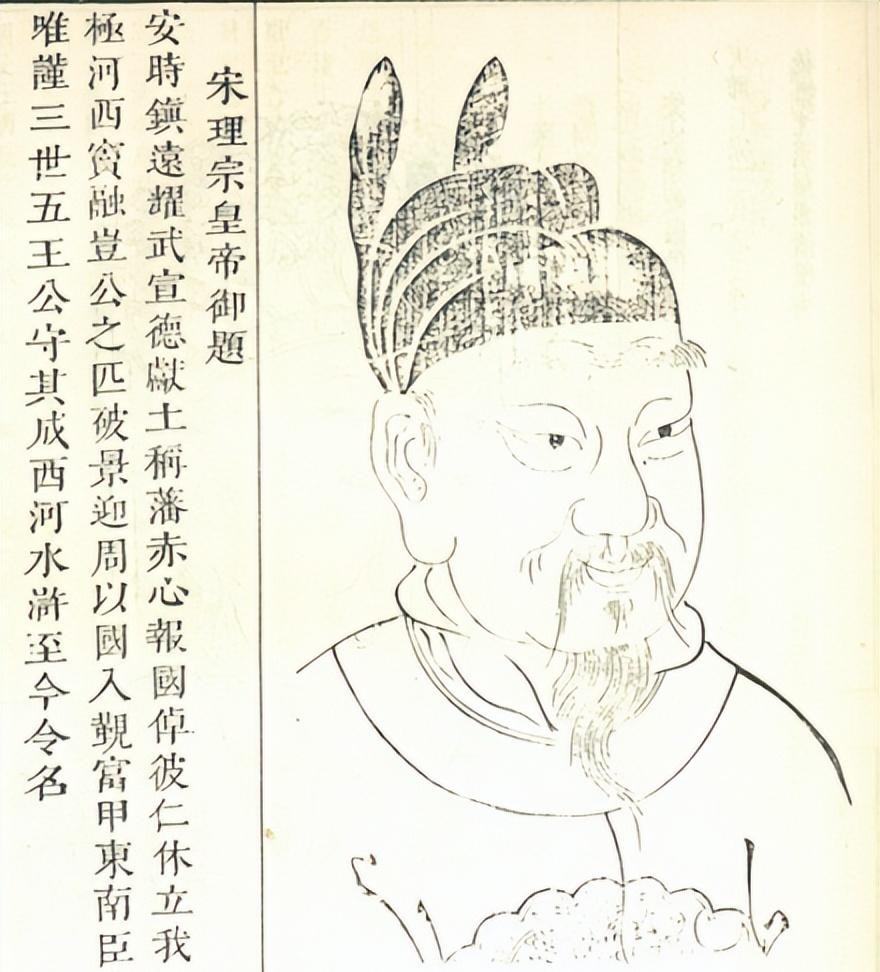 宋理宗皇帝御題
安時鎮遠耀武宣德獻土稱藩赤心報國倬彼仁休立我
極河西竇融豈公之匹破景迎周以國入覲富甲東南臣
唯謹三世五王公守其成西河水滸至今令名